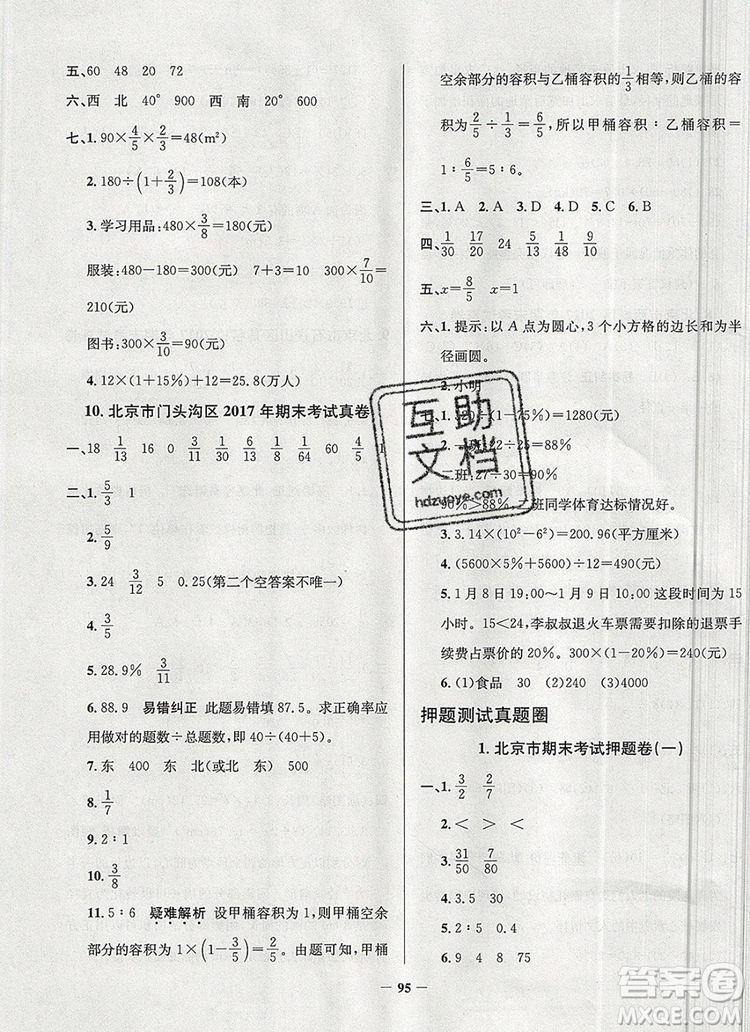 五、60 48 20 72
六、西 北 40° 900 西 南 20° 600
七、1. 90×4/5×2/3=48(m²)
2. 180÷(1+2/3)=108(本)
3. 学习用品:480×3/8=180(元)
服装:480-180=300(元) 7+3=10 300×7/10=
210(元)
图书:300×3/10=90(元)
4. 12+12×(1+15%)=25.8(万人)
10. 北京市门头沟区 2017 年期末考试真卷
一、18 1/13 16 0 3/10 1/6 1/14 1/15 60 4/5 1
二、1. 5/3 1
2. 5/9
3. 24 3/12 5 0.25(第二个空答案不唯一)
4. 3/5
5. 28.9% 3/11
6. 88.9 易错纠正 此题易错填 87.5。求正确率应
用做对的题数÷总题数,即 40÷(40+5)。
7. 东 400 东 北(或北 东) 200
8. 1/7
9. 2∶1
10. 3/8
11. 5∶6 疑难解析 设甲桶容积为 1,则甲桶空余
部分的容积为 1×(1-3/5)=2/5。由题可知,甲桶
空余部分的容积与乙桶容积的1/3相等,则乙桶的容
积为2/5÷1/3=6/5,所以甲桶容积∶乙桶容积=
1∶6/5=5∶6。
三、1. A 2. A 3. D 4. D 5. C 6. B
四、1/30 17/20 24 5/14 1/13 9/10
五、x=8/5 x=1
六、1. 提示:以 A 点为圆心,3 个小方格的边长和为半
径画圆。
2. 小明
×(1-20%)=1280(元)
22÷25=88%
二班:27÷30=90%
90%>88%,二班同学体育达标情况好。
3. 3.14×(10²-6²)=200.96(平方厘米)
4. (5600×5%+5600)÷12=490(元)
5. 1 月 8 日 19:00~1 月 9 日 10:00 这段时间为 15
小时。15<24,李叔叔退火车票需要扣除的退票手
续费占票价的 20%。300×(1-20%)=240(元)
6. (1)食品 30 (2)240 (3)4000
押题测试真题圈
1. 北京市期末考试押题卷(一)
一、1. 3/2 2/3
2. < > <
3. 31/50 7/80
4. 180
5. 12.56
6. 9 0.9 九
互助
文档
hdzuoye.com
95
答案圈
MXQE.COM